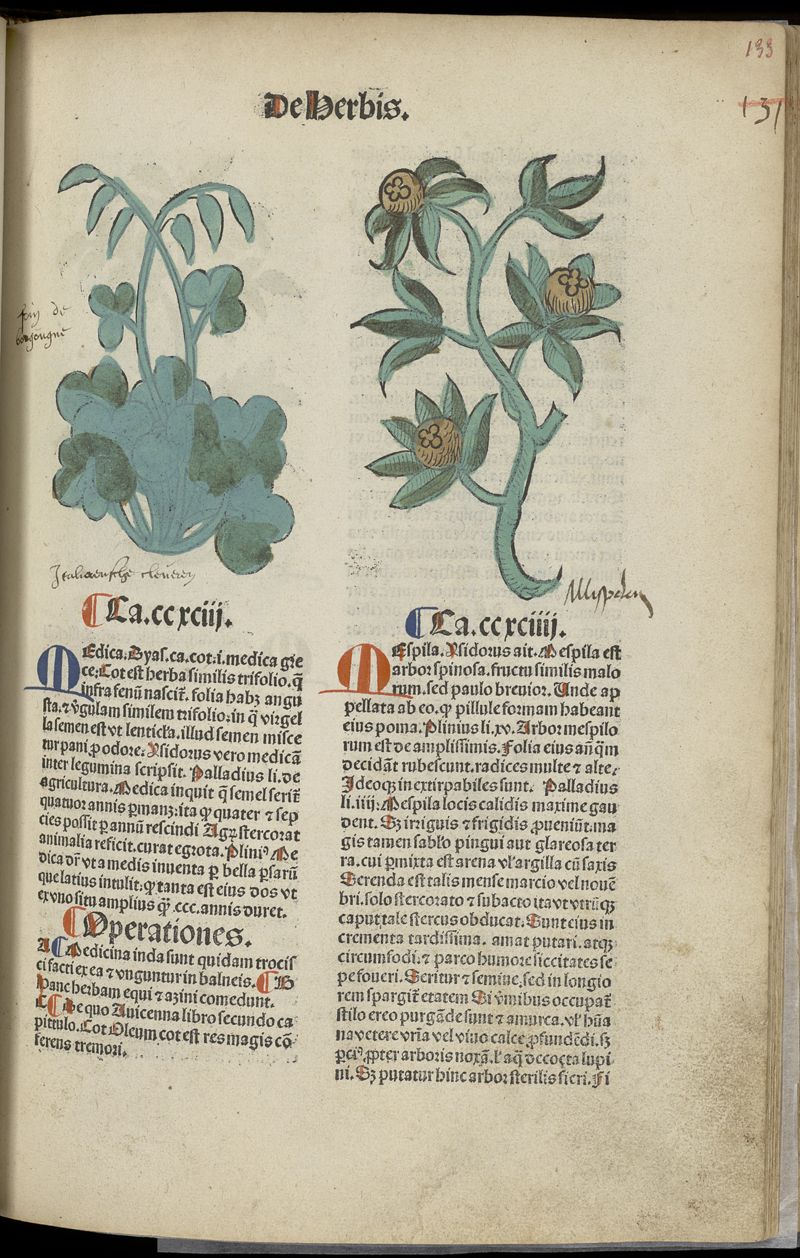 133
131
De Herbis.
foin de
bourgougne
Italiaensche cleveren
Ca.ccxciij.
MEdica. Dyas.ca.cot.i.medica gre
ce: Cot est herba similis trifolio. q̃
infra fenũ nascit̃. folia habꝫ angu
sta. ⁊ v̾gulam similem trifolio: in q̃ virgel
la semen est vt lenticl̃a. illud semen misce
tur pani ꝓ odore: Ysidorus vero medicã
inter legumina scripsit. Palladius li. de
agricultura. Medica inquit q̃ semel serit̃
quatuor annis ꝑmanꝫ: ita ꝙ quater ⁊ sep
cies possit ꝑ annũ rescindi Agꝝ stercorat
animalia reficit. curat egrota. Pliniꝰ Me
dica dr̃ vt a medis inuenta ꝑ bella ꝑsarũ
que latius intulit: ꝙ tanta est eius dos vt
ex vno situ amplius q̃ .ccc. annis duret.
Operationes.
A Medicina inda sunt quidam trocis
ci facti ex ea ⁊ vnguntur in balneis. B
Hanc herbam equi ⁊ azini comedunt.
C De quo Auicenna libro secundo ca
pittulo. Cot Oleum cot est res magis cõ
ferens tremori.
Ca.ccxciiij.
MEspila. Ysidorus ait. Mespila est
arbor spinosa. fructu similis malo
rum. sed paulo breuior. Unde ap
pellata ab eo. ꝙ pillule formam habeant
eius poma. Plinius li. xv. Arbor mespilo
rum est de amplissimis. Folia eius añq̃m
decidãt rubescunt. radices multe ⁊ alte:
Ideoqꝫ inextirpabiles sunt. Palladius
li. iiij: Mespila locis calidis maxime gau
dent. Sꝫ irriguis ⁊ frigidis ꝓueniũt. ma
gis tamen sabl̾o pingui aut glareosa ter
ra. cui ꝑmixta est arena vl̾ argilla cũ saxis
Serenda est talis mense marcio vel nouẽ
bri. solo stercorato ⁊ subacto ita vt vtrũqꝫ
caput tale stercus obducat. Sunt eius in
crementa tardissima. amat putari. atqꝫ
circumfodi. ⁊ parco humore siccitates se
pe foueri. Seritur ⁊ semine, sed in longio
rem spargit̃ etatem Si v̾mibus occupat̃
stilo ereo purgãde sunt ⁊ amurca. vl̾ hũa
na vetere vrĩa vel viuo calce ꝓfundẽdi. sꝫ
ꝑciꝰ. ꝓpter arboris noxã. l̾ aq̃ decocta lupi
ni. Sꝫ putatur hinc arbor sterilis fieri. Fi